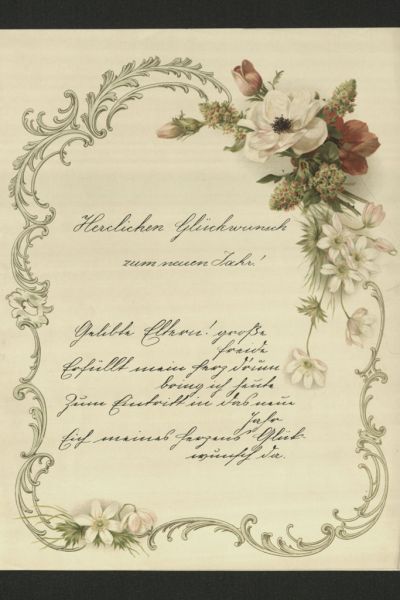 Herclichen Glückwunsch
zum neuen Jahr!
Gelibte Eltern! große
freide
Erfüllt mein herz drinn
bring ich heute
Zum Eintritt in das neue
Jahr
Eich meines herzens Glück-
wunsch da.